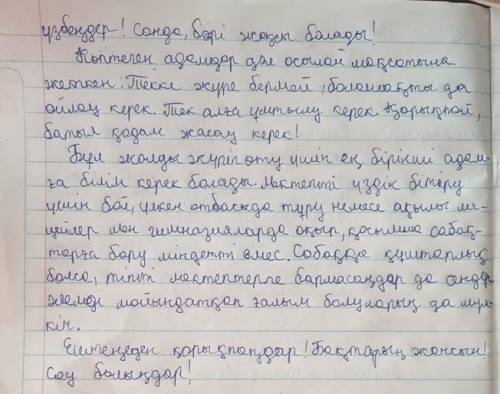 үзбеңдер! Сонда, бәрі жақсы болады!
Көптеген адамдар дәл осылай мақсатына
жеткен. Текке жүре бермей, болашақты да
ойлау керек. Тек алға ұмтылу керек. Қорықпай,
батыл қадам жасау керек!
Бұл жолды жүріп өту үшін ең бірінші адам-
ға білім керек болады. Мектепті үздік бітіру
үшін бай, үлкен отбасыда тұру немесе ақылы ли-
цейлер мен гимназияларда оқыр, қосымша сабақ-
тарға бару міндетті емес. Сабаққа құштарлық
болса, тіпті мектептерге бармасаңдар да сендер
әлемді мойындатқан ғалым болуларың да мүм-
кін.
Ештеңеден қорықпаңдар! Бақтарың жансын!
Сау болыңдар!